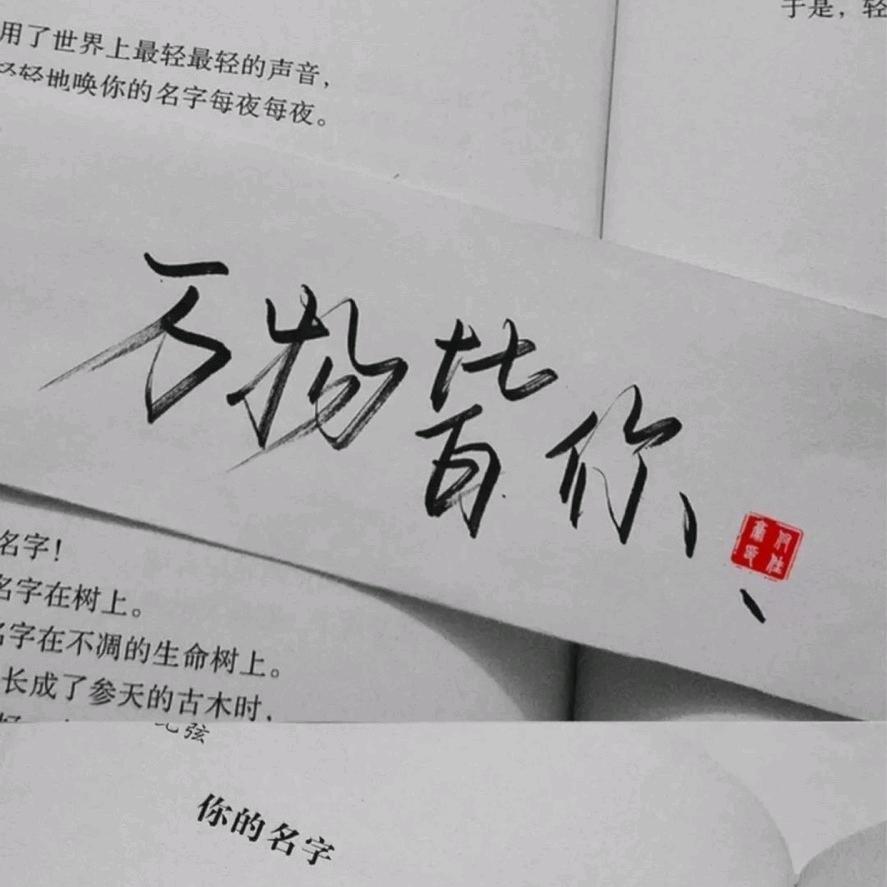 于是，轻
用了世界上最轻最轻的声音，
轻轻地唤你的名字每夜每夜。
万物皆你
名字！
名字在树上。
名字在不凋的生命树上。
长成了参天的古木时，
七弦
你的名字